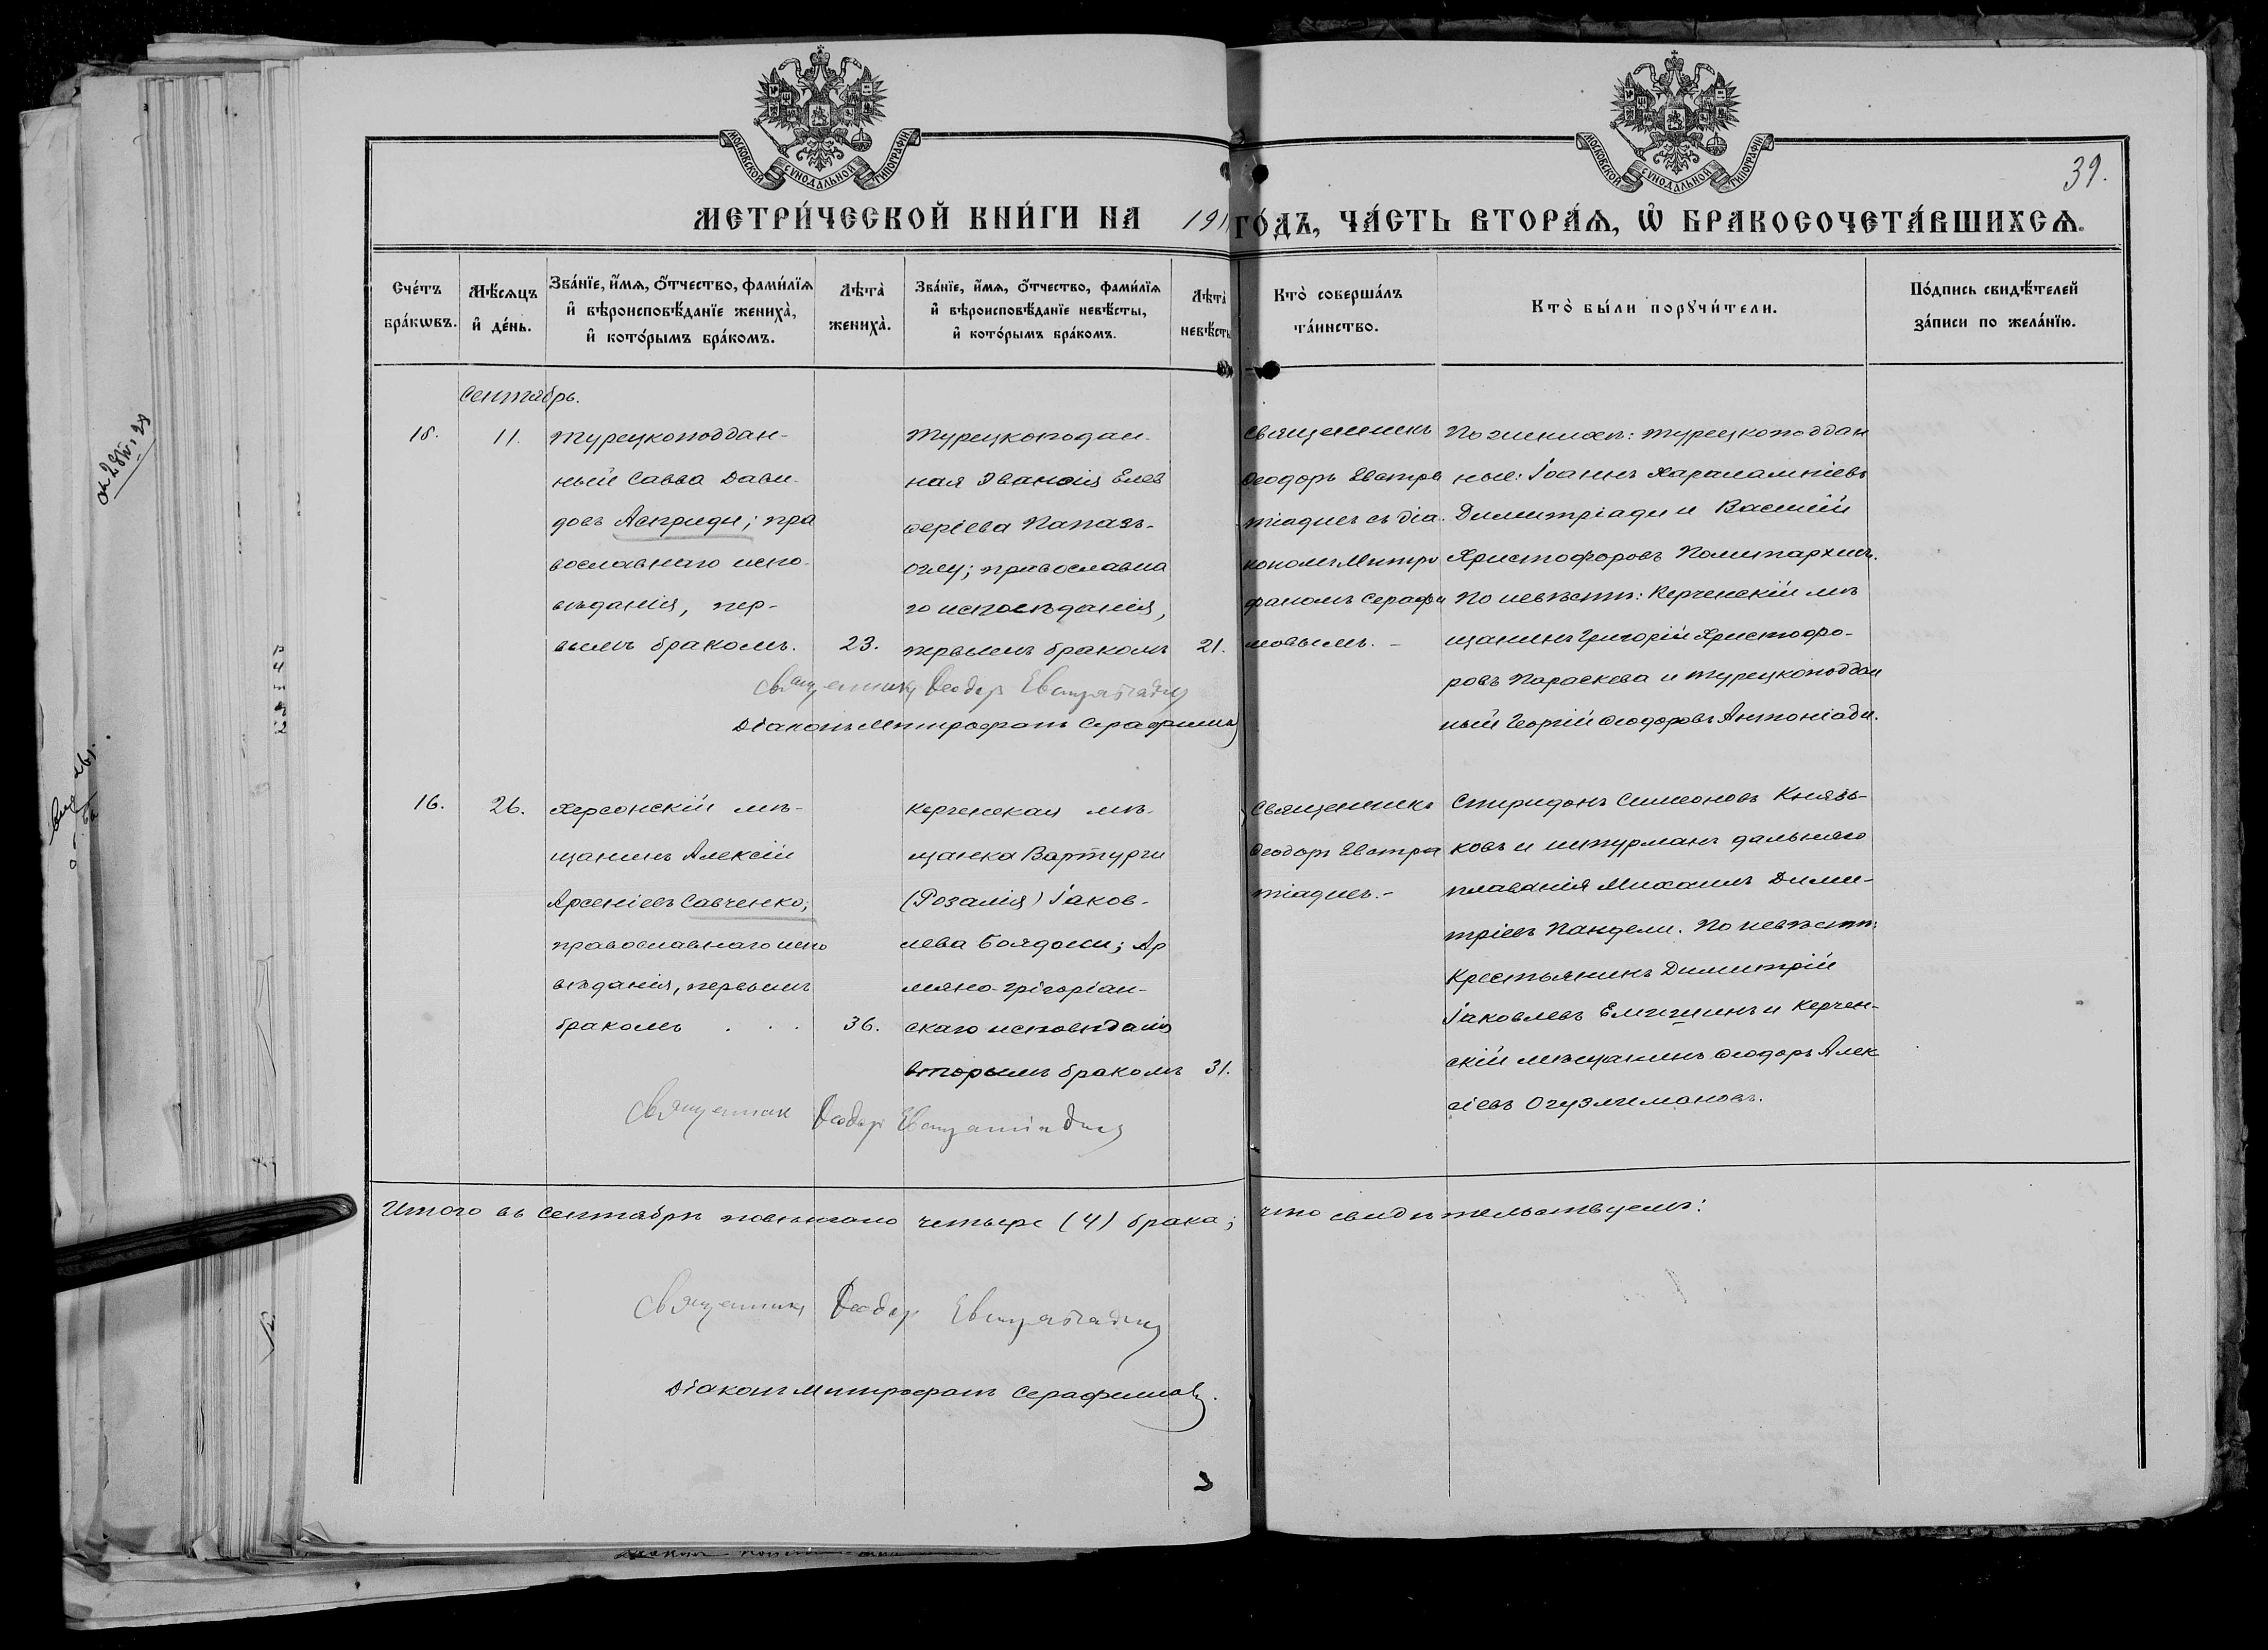 МОСКОВСКОЙ СѴНОДАЛЬНОЙ ТИПОГРАФІИ
МОСКОВСКОЙ СѴНОДАЛЬНОЙ ТИПОГРАФІИ
39.
МЕТРИ́ЧЕСКОЙ КНИ́ГИ НА 191 ГО́ДЪ, ЧА́СТЬ ВТОРА́Ѧ, Ѽ БРАКОСОЧЕТА́ВШИХСѦ.
Сче́тъ бра́кѡвъ.
Мѣ́сѧцъ и҆ де́нь.
Зва́нїе, и҆́мѧ, ѻ҆́тчество, фами́лїѧ и҆ вѣроисповѣ́данїе жениха̀, и҆ кото́рымъ бра́комъ.
Лѣта̀ жениха̀.
Зва́нїе, и҆́мѧ, ѻ҆́тчество, фами́лїѧ и҆ вѣроисповѣ́данїе невѣ́сты, и҆ кото́рымъ бра́комъ.
Лѣта̀ невѣ́сты
Кто̀ соверша́лъ та́инство.
Кто̀ бы́ли порꙋчи́тели.
По́дпись свидѣ́телей за́писи по жела́нїю.
Сентябрь.
15.
11.
Турецкоподдан-
ный Савва Дави-
довъ Асприди; пра
вославнаго испо-
вѣданія, пер-
вымъ бракомъ.
23.
Турецкоподан-
ная Иванѳія Елев
ѳеріева Папазъ-
оглу; православна
го исповѣданія,
первымъ бракомъ
21.
Священникъ
Ѳеодоръ Евстра
тіадисъ съ діа-
кономъ Митро
фаномъ Серафи
мовымъ. –
По женихѣ: турецкоподдан
ные: Іоаннъ Харалампіевъ
Димитріади и Василій
Христофоровъ Политархисъ.
По невѣстѣ: Керченскій мѣ
щанинъ Григорій Христофо-
ровъ Параскева и турецкоподдан
ный Георгій Ѳеодоровъ Антоніади.
Священникъ Ѳеодоръ Евстратіадисъ
Діаконъ Митрофанъ Серафимовъ
16.
26.
Херсонскій мѣ-
щанинъ Алексій
Арсеніевъ Савченко;
православнаго испо
вѣданія, первымъ
бракомъ . . .
36.
Керченская мѣ-
щанка Вартурги
(Розалія) Іаков-
лева Боядожи; Ар
мяно-григоріан-
скаго исповѣданія
вторымъ бракомъ
31.
Священникъ
Ѳеодоръ Евстра
тіадисъ. –
Спиридонъ Симеоновъ Князь-
ковъ и штурманъ дальняго
плаванія Михаилъ Дими-
тріевъ Пандели. По невѣстѣ:
Крестьянинъ Димитрій
Іаковлевъ и Керчен-
скій мѣщанинъ Ѳеодоръ Алек
сіевъ Огузлимановъ.
Священник Ѳеодоръ Евстратіадисъ
Итого въ Сентябрѣ повѣнчано четыре (4) брака; что свидѣтельствуемъ:
Священникъ Ѳеодоръ Евстратіадисъ
Діаконъ Митрофанъ Серафимовъ.